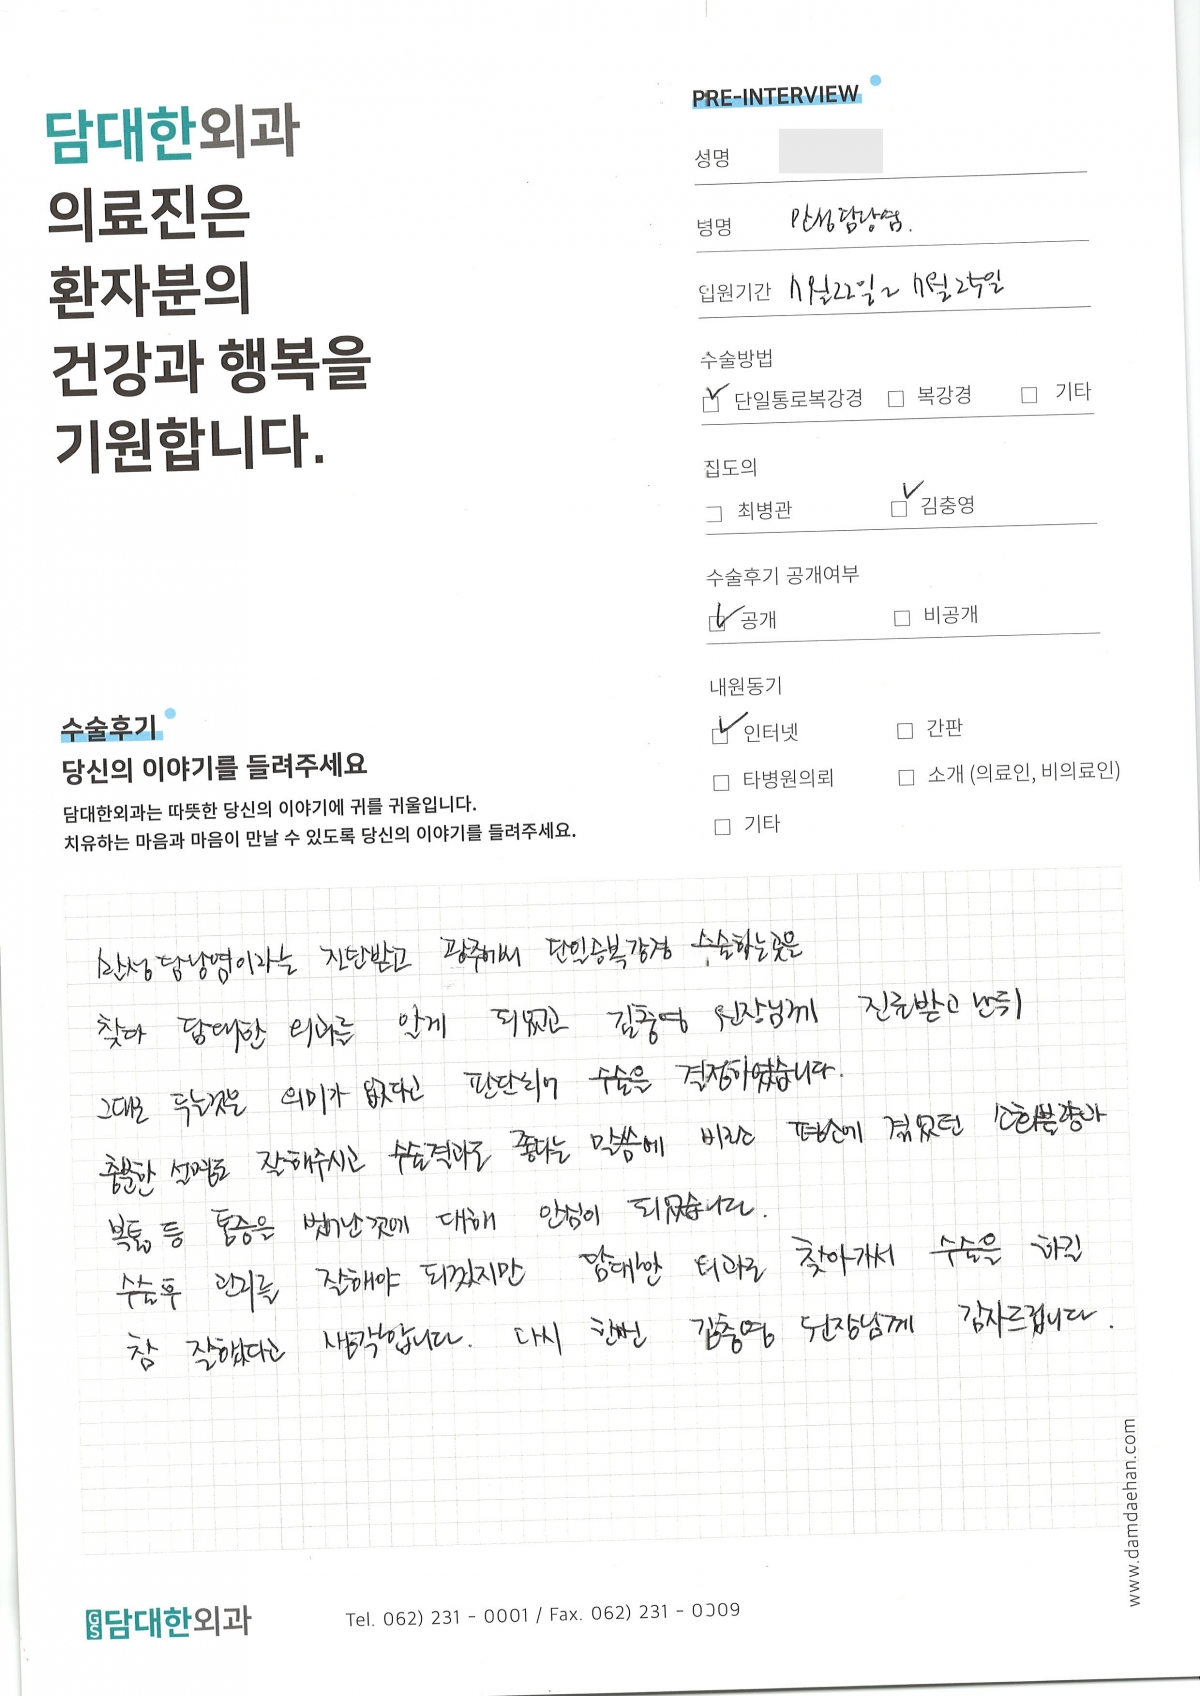 담대한외과
의료진은
환자분의
건강과 행복을
기원합니다.
PRE-INTERVIEW
성명
병명 만성담낭염.
입원기간 11월22일~ 11월25일
수술방법
단일통로복강경 복강경 기타
집도의
최병관 김충영
수술후기 공개여부
공개 비공개
내원동기
인터넷 간판
타병원의뢰 소개 (의료인, 비의료인)
기타
수술후기
당신의 이야기를 들려주세요
담대한외과는 따뜻한 당신의 이야기에 귀를 귀울입니다.
치유하는 마음과 마음이 만날 수 있도록 당신의 이야기를 들려주세요.
만성담낭염이라는 진단받고 광주에서 단일공복강경 수술하는곳을
찾다 담대한 외과를 알게 되었고 김충영 원장님께 진료받고 난뒤
그대로 두는것은 의미가 없다고 판단되어 수술을 결정하였습니다.
충분한 설명도 잘해주시고 수술결과도 좋다는 말씀에 비로소 평소에 겪었던 소화불량과
복통 등 통증을 벗어난것에 대해 안심이 되었습니다.
수술후 관리를 잘해야 되겠지만 담대한 외과로 찾아가서 수술을 하길
참 잘했다고 생각합니다. 다시 한번 김충영 원장님께 감사드립니다.
www.damdaehan.com
GS 담대한외과
Tel. 062) 231 - 0001 / Fax. 062) 231 - 0009